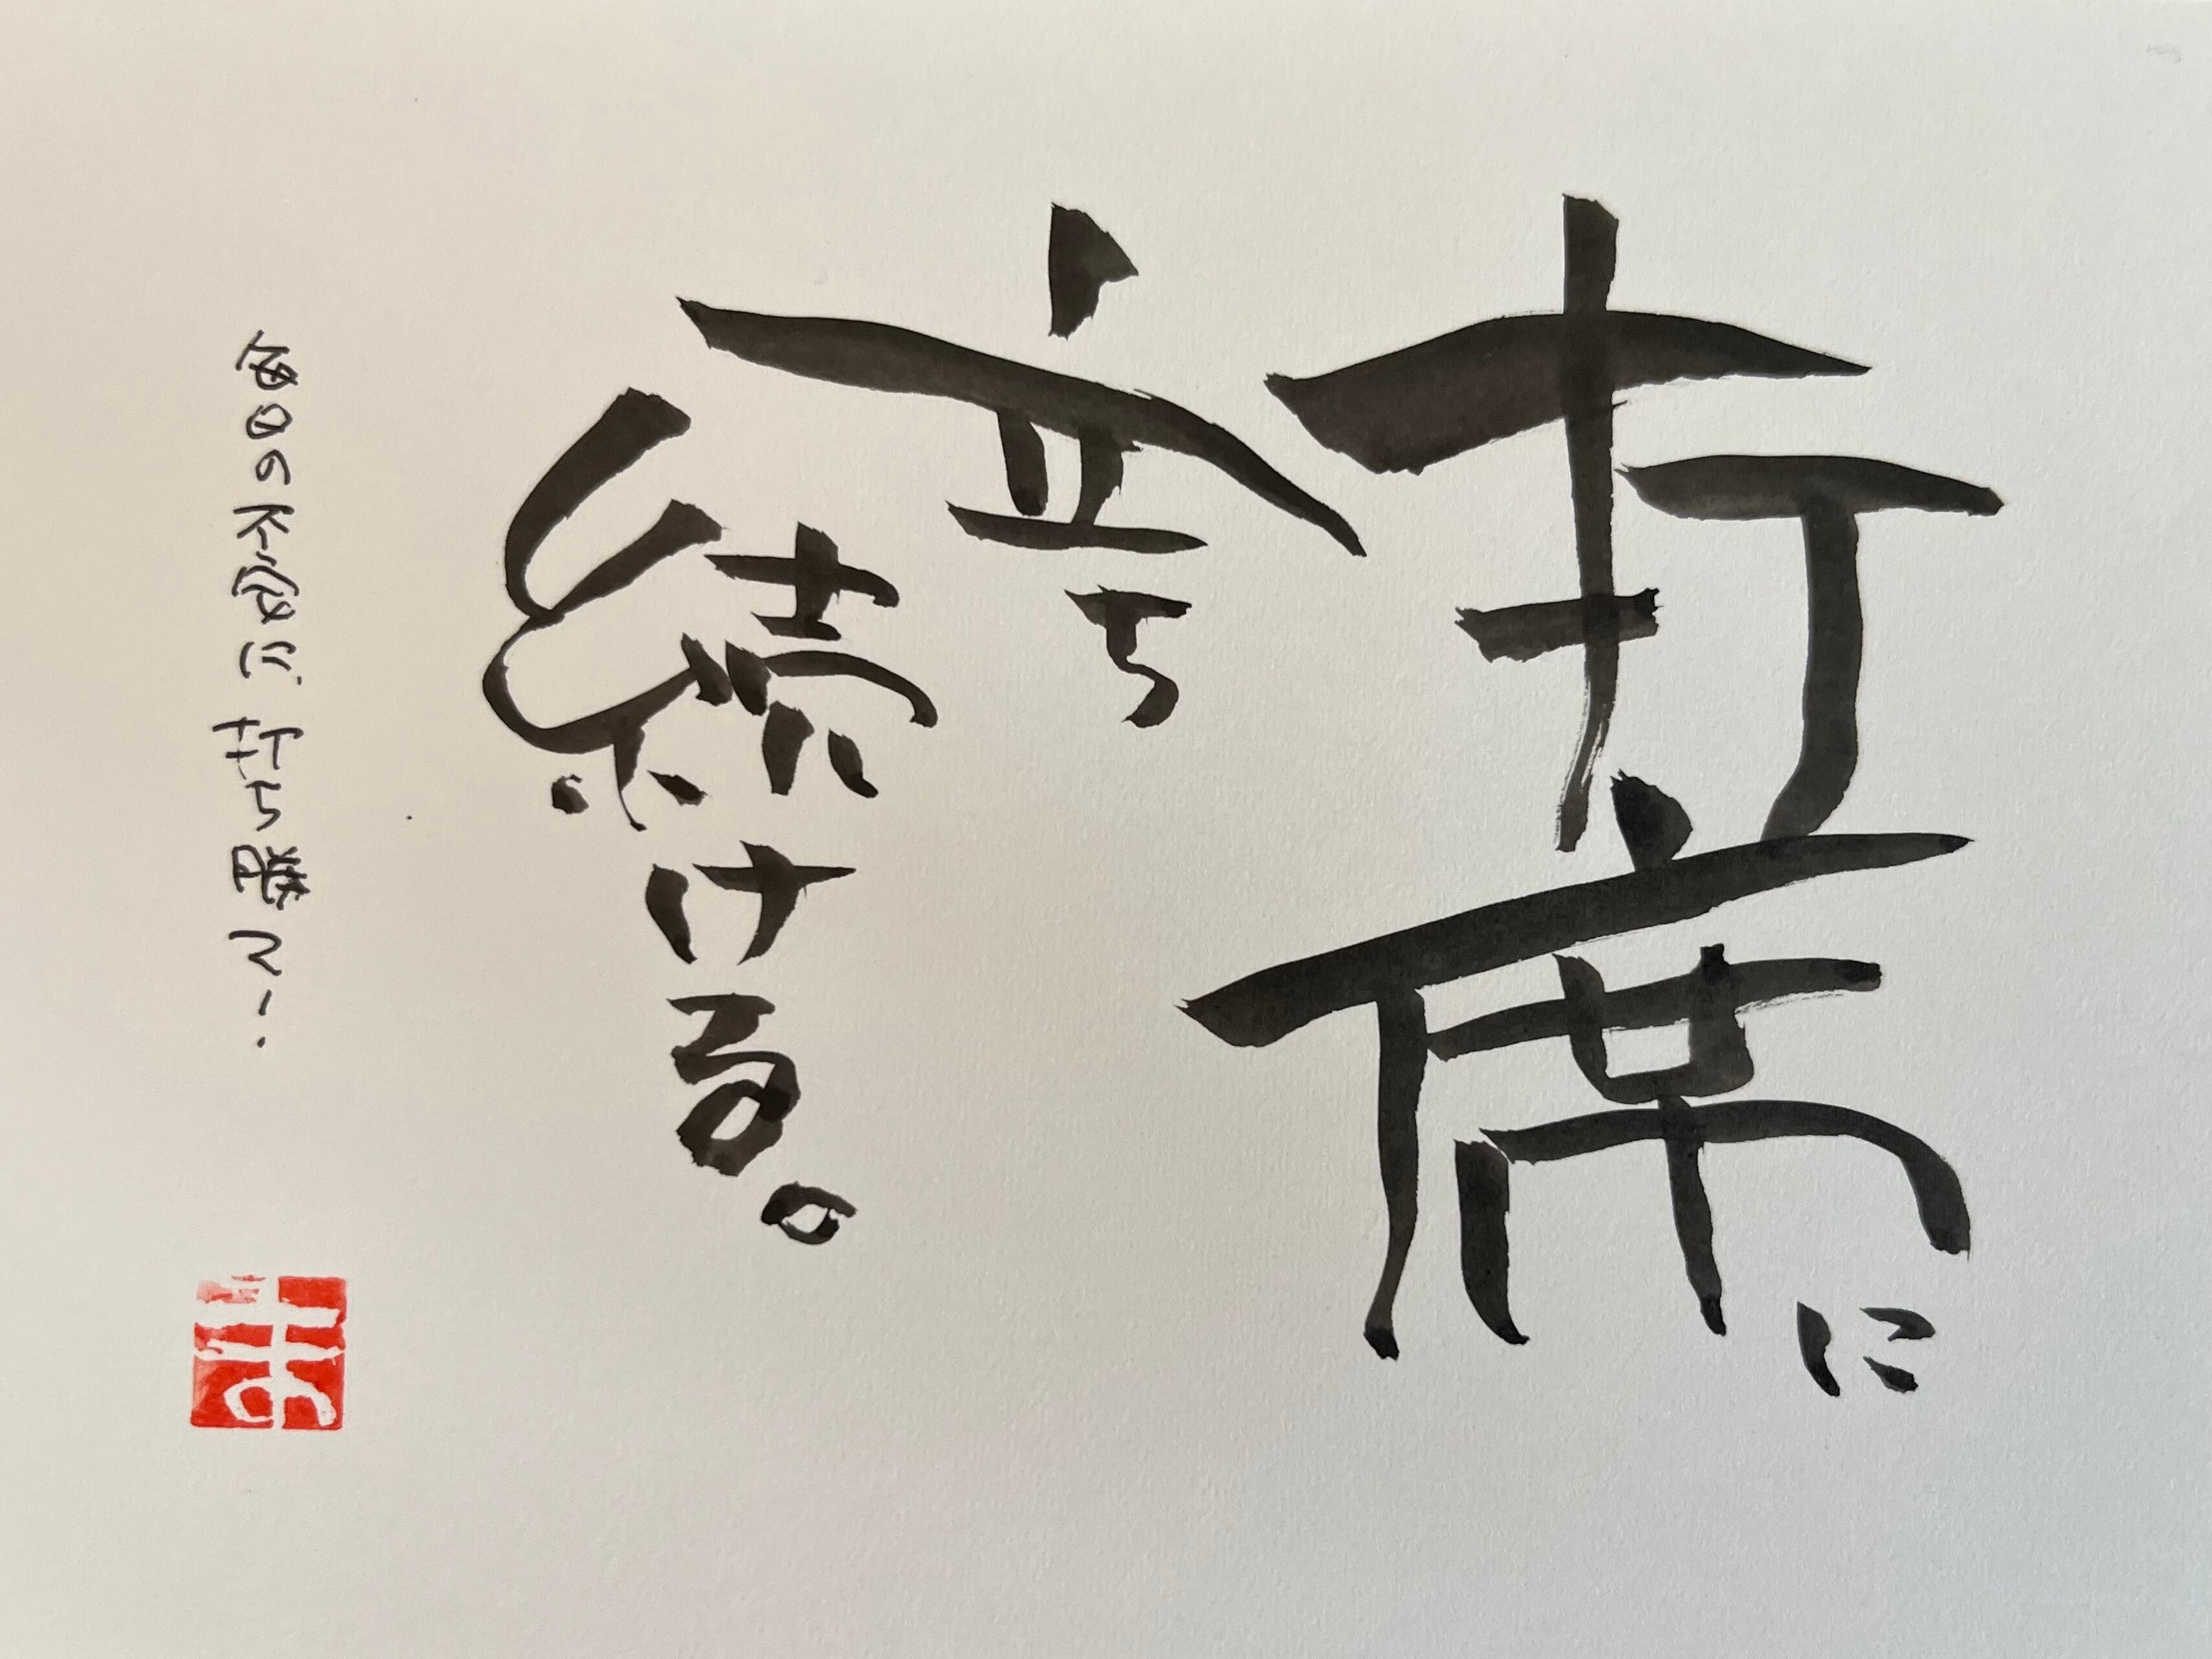 打席に
立ち
続ける。
毎日の不安に打ち勝て!